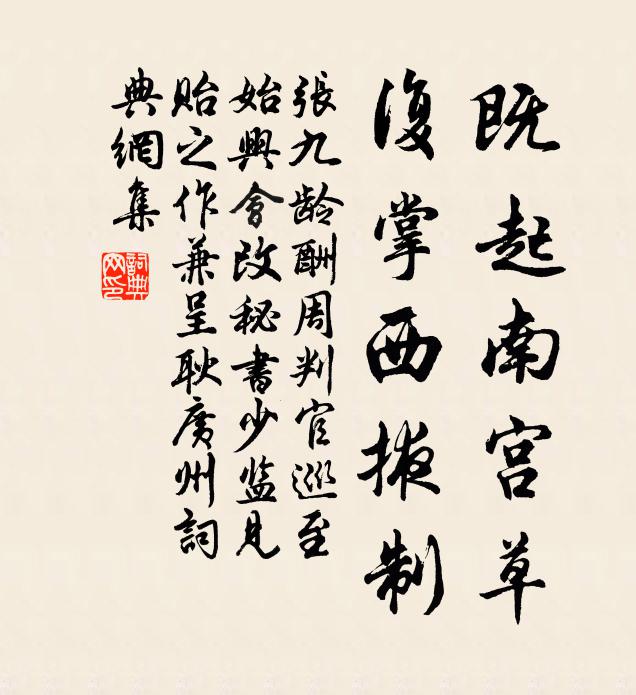 既起南宫草
復掌西掖制
張九龄酬周判官巡至
始興會改秘書少监見
贻之作兼呈耿廣州詞
典網集
詞典
网印